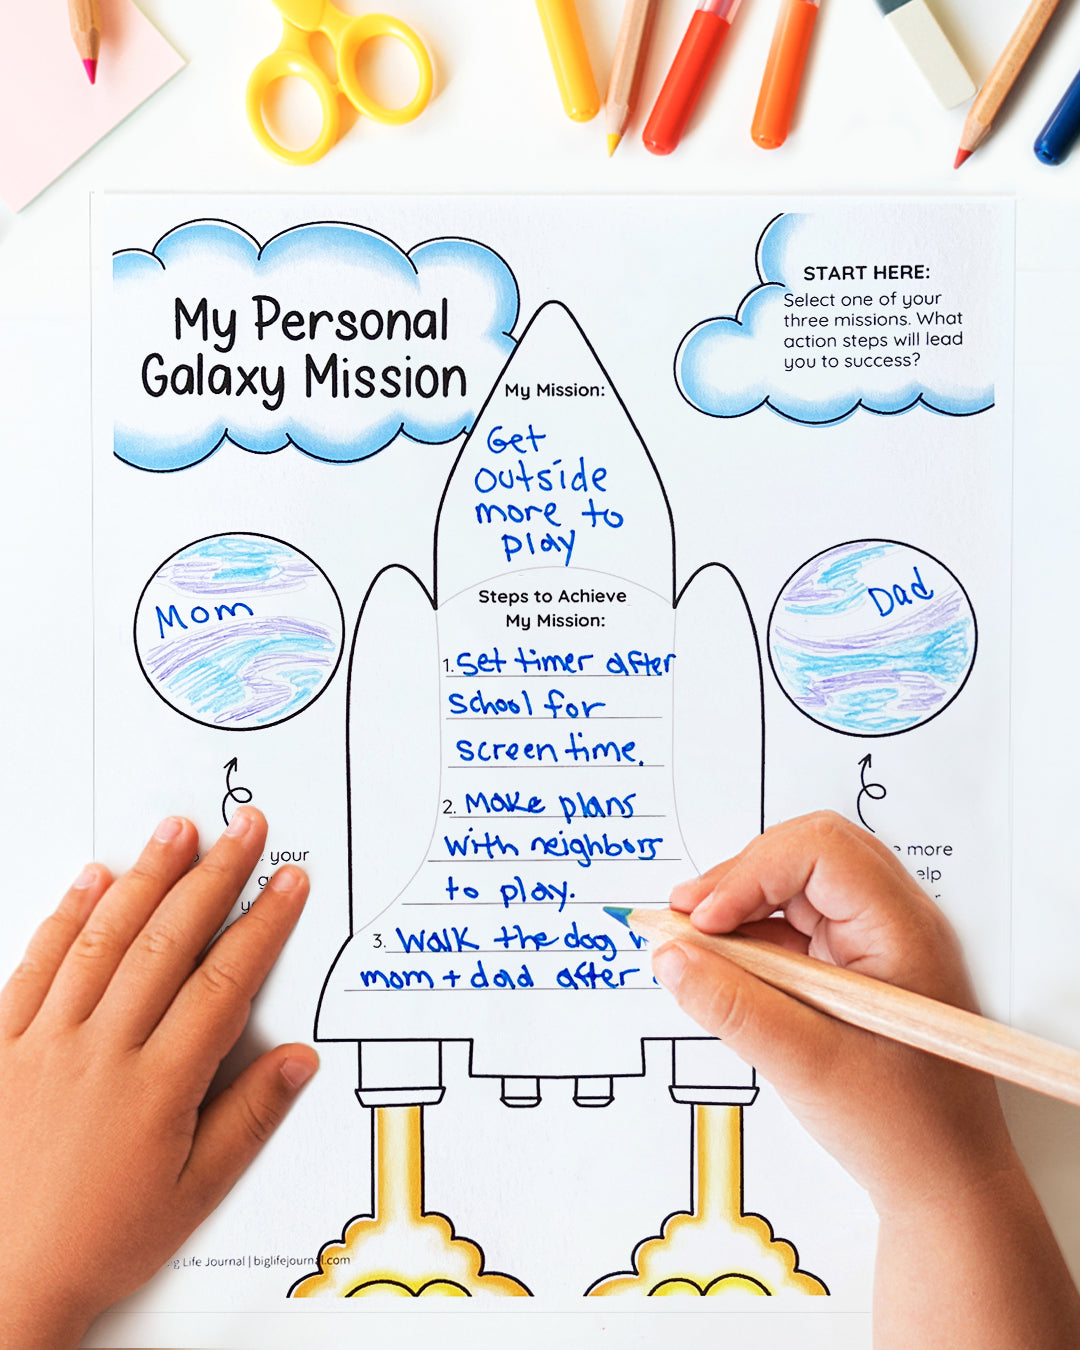 My Personal
Galaxy Mission
START HERE:
Select one of your
three missions. What
action steps will lead
you to success?
My Mission:
Get
outside
more to
play
Mom
Dad
Steps to Achieve
My Mission:
1. Set timer after
school for
screen time.
2. Make plans
with neighbors
to play.
3. Walk the dog
mom + dad after
your
more
Life Journal | biglifejournal.com